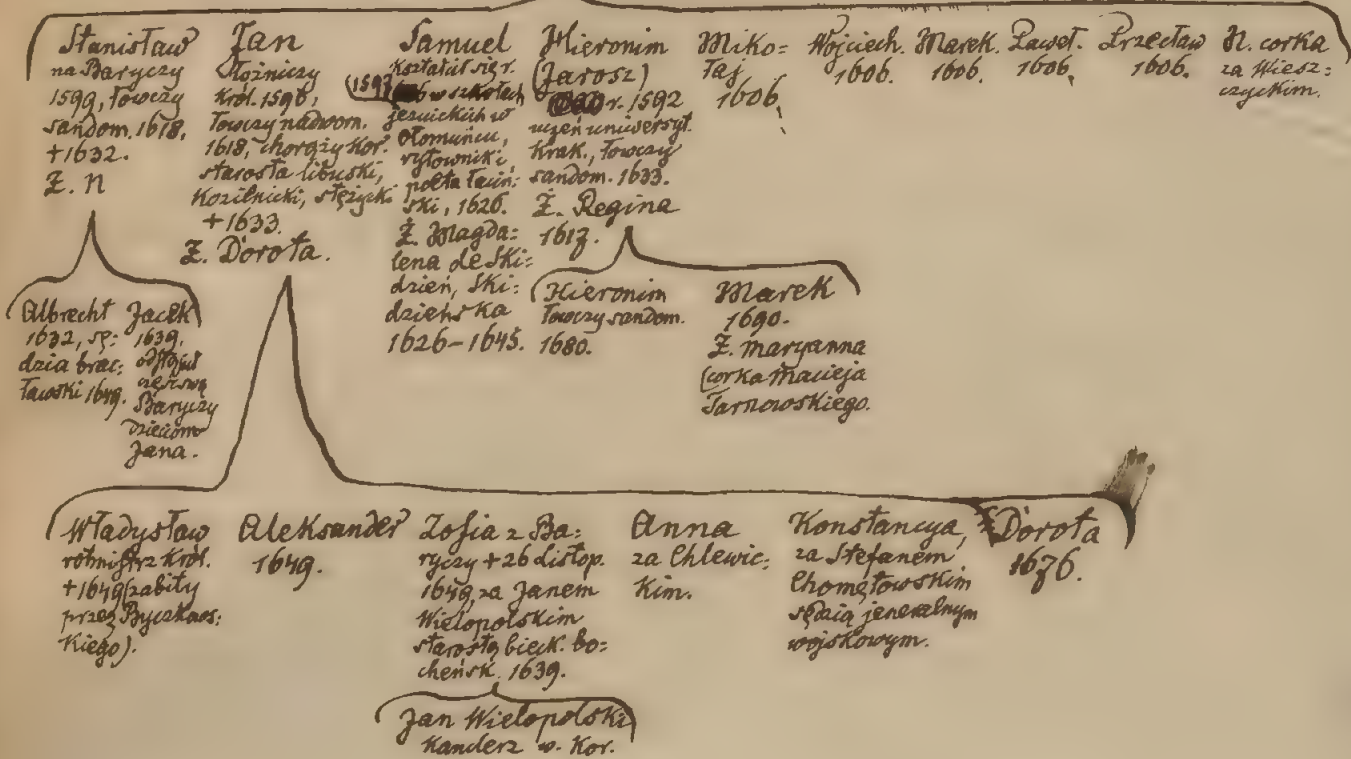 Stanisław
na Baryczy
1599, łowczy
sandom. 1618.
+1632.
Ż. N
Jan
łożniczy
Król. 1596,
łowczy nadwom.
1618, chorąży kor.
starosta libuski,
Kozienicki, stężycki
+1633.
Ż. Dorota.
Samuel
Kształcił się r.
(1597) w szkołach
jezuickich w
Ołomuńcu,
rytownik i
poeta łaciń:
ski, 1626.
Ż. Magda:
lena de Ski:
dzień, Ski:
dzieńska
1626–1645.
Hieronim
(Jarosz)
r. 1592
uczeń uniwersyt.
Krak., łowczy
sandom. 1633.
Ż. Regina
1617.
Miko=
łaj
1606.
Wojciech.
1606.
Marek.
1606.
Paweł.
1606.
Przecław
1606.
N. corka
za Wiesz:
czyckim.
Albrecht
1632, sę:
dzia brac:
ławski 1649.
Jacek
1639.
częśćswą
Baryczy
dzieciom
Jana.
Hieronim
łowczy sandom.
1680.
Marek
1690.
Ż. Maryanna
(corka Macieja
Tarnowskiego.
Władysław
rotmistrz Król.
+1649 (zabity
przez Byczkows:
Kiego).
Aleksander
1649.
Zofia z Ba:
ryczy +26 Listop.
1649, za Janem
Wielopolskim
starostą bieck. bo:
cheńsk. 1639.
Anna
za Chlewic:
Kim.
Konstancya,
za Stefanem
Chomętowskim
sędzią jeneralnym
wojskowym.
Dorota
1676.
Jan Wielopolski
Kanclerz w. Kor.